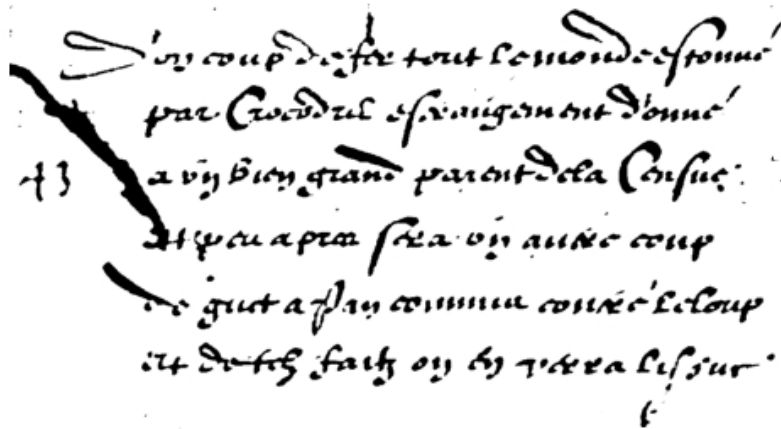 D'un coup de fer tout le monde estonné
par Crocodril estrangement donné
43 a un bien grand parent de la Censue
Et peu apres sera un autre coup
de guet a pan commis contre le loup
et de telz faitz on en verra lissue